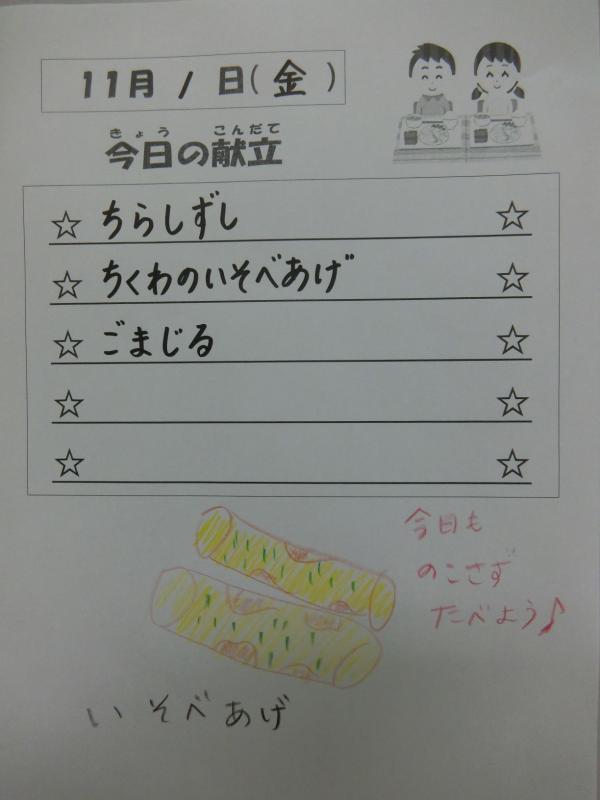 11月1日(金)
きょう こんだて
今日の献立
☆ ちらしずし ☆
☆ ちくわのいそべあげ ☆
☆ ごまじる ☆
☆ ☆
☆ ☆
今日も
のこさず
たべよう♪
いそべあげ